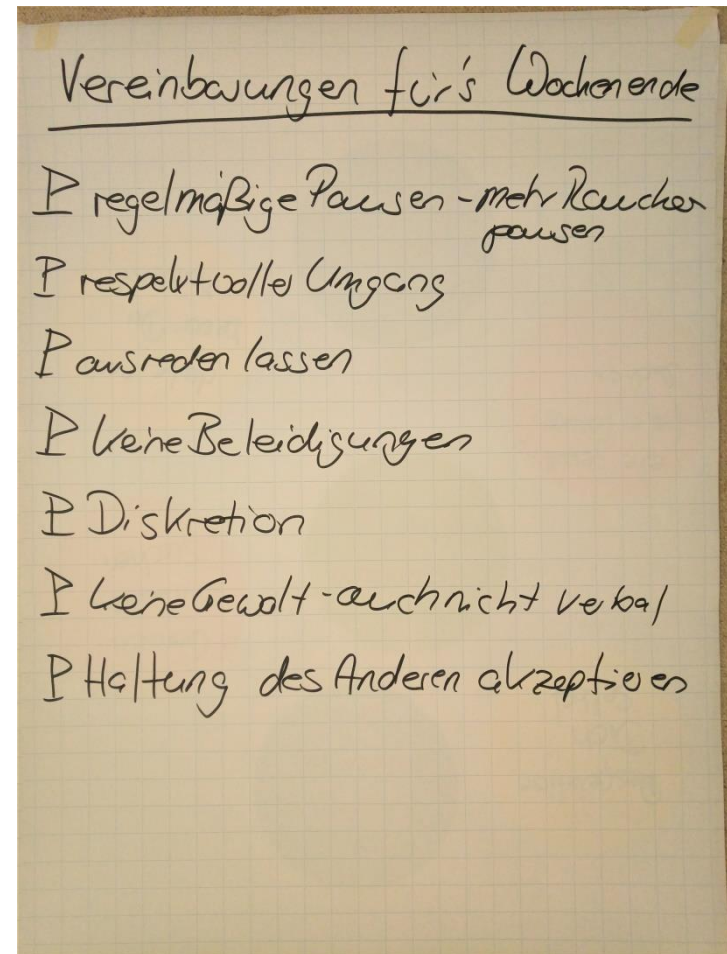 Vereinbarungen für's Wochenende
regelmäßige Pausen - mehr Raucher
pausen
respektvoller Umgang
ausreden lassen
keine Beleidigungen
Diskretion
keine Gewalt - auch nicht verbal
Haltung des Anderen akzeptieren